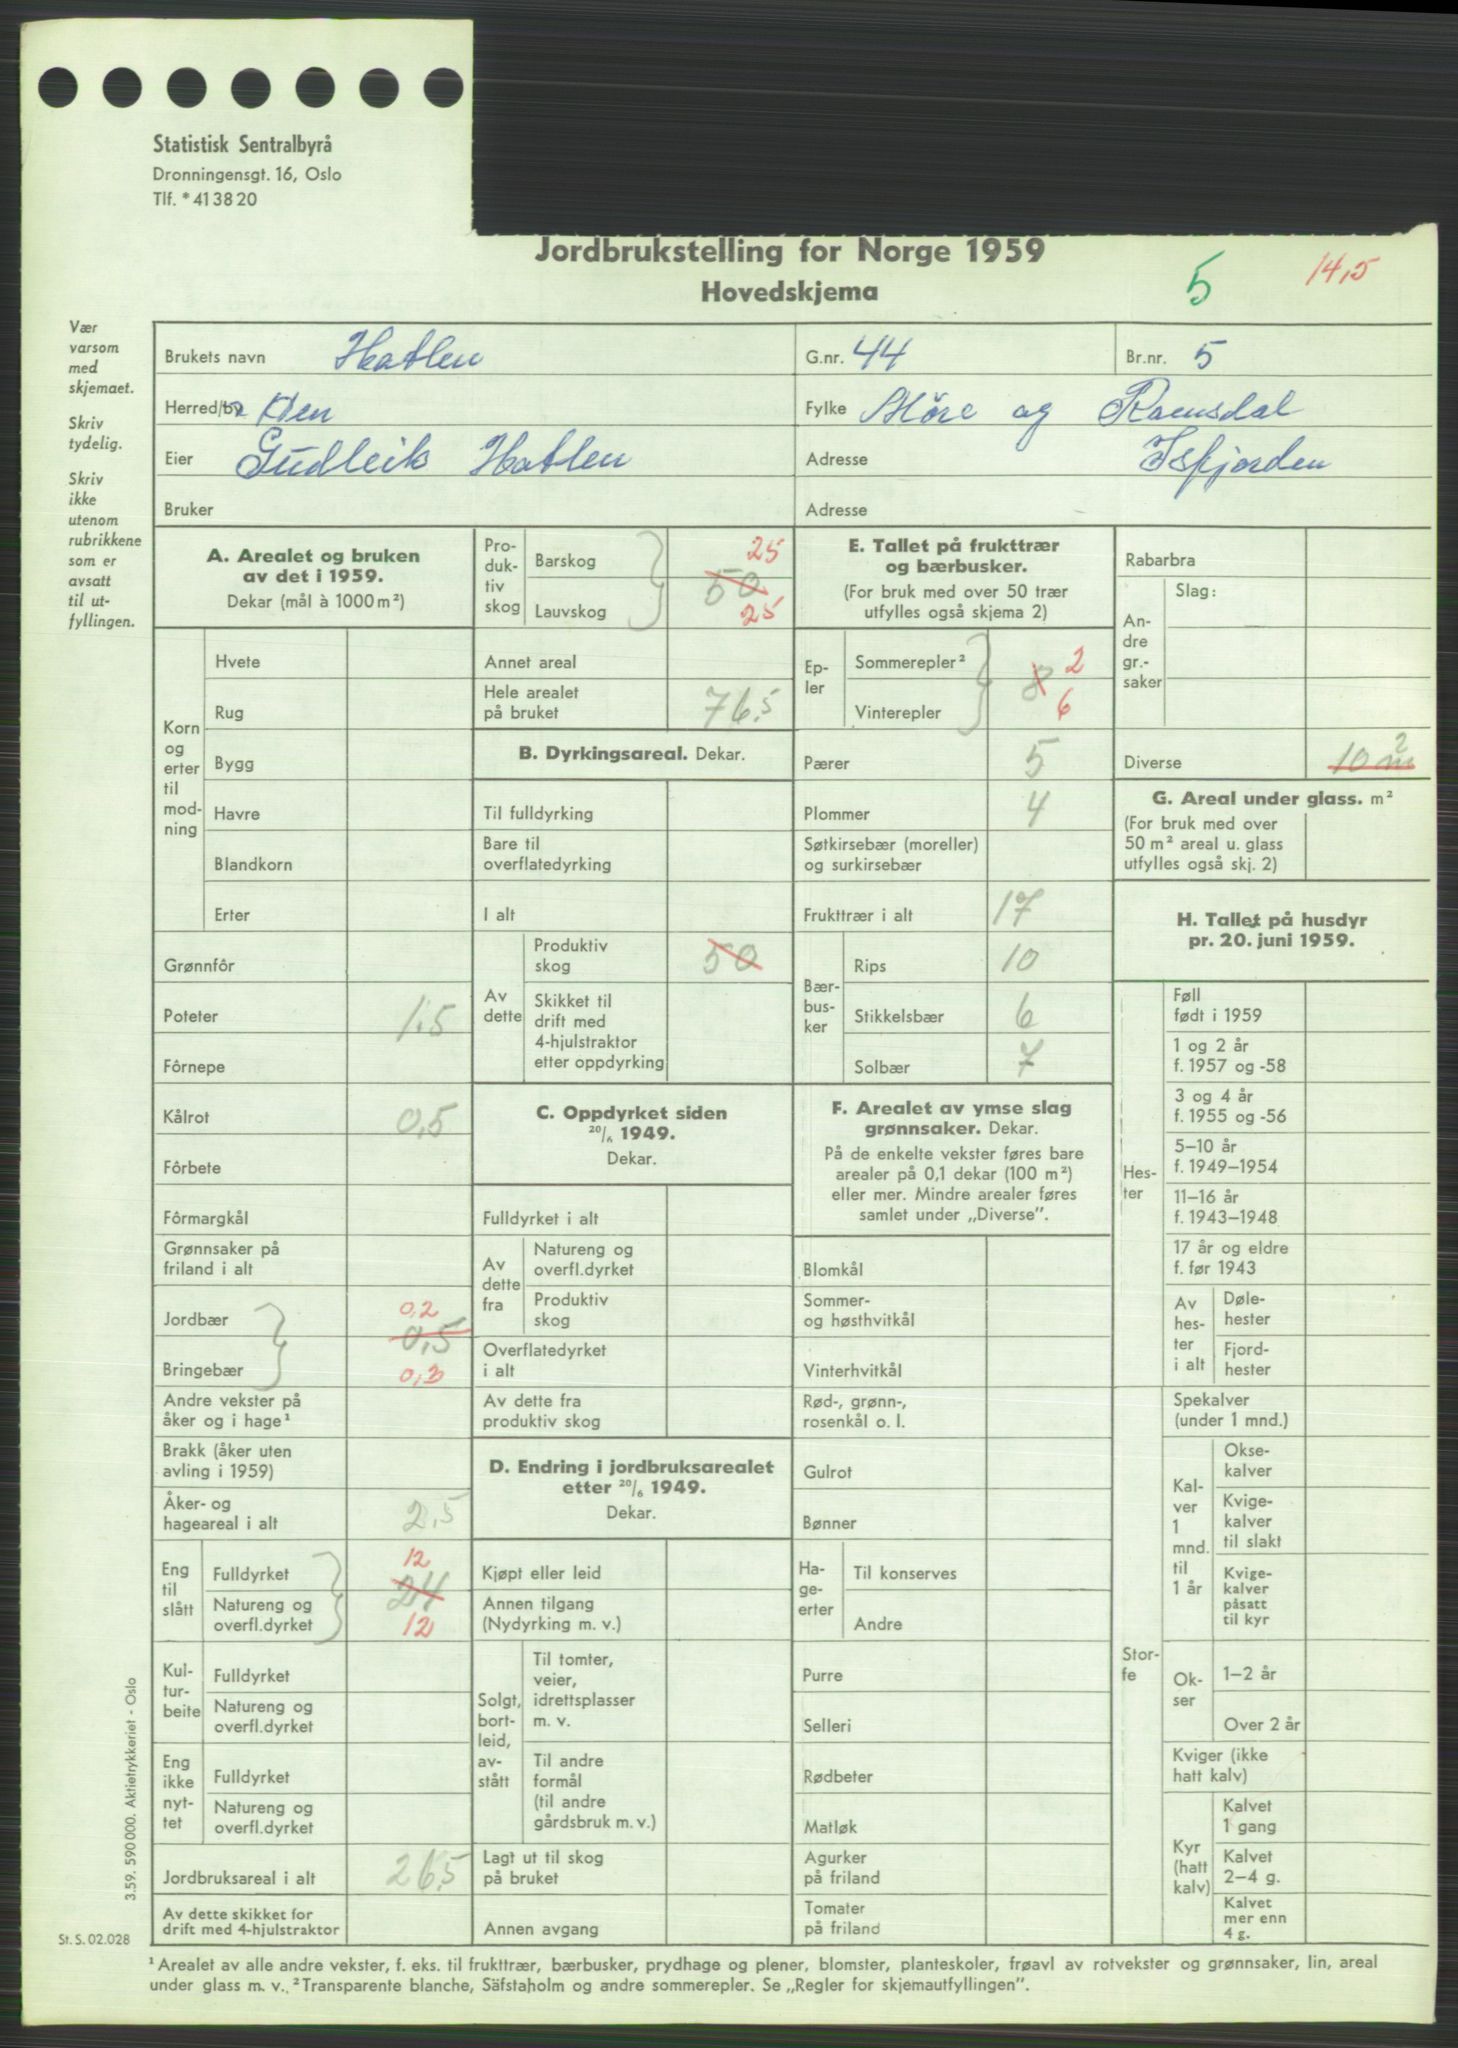 Statistisk Sentralbyrå
Dronningensgt. 16, Oslo
Tlf. * 41 38 20
Jordbrukstelling for Norge 1959
Hovedskjema
5
14,5
Vær
varsom
med
skjemaet.
Skriv
tydelig.
Skriv
ikke
utenom
rubrikkene
som er
avsatt
til ut-
fyllingen.
Brukets navn Hatlen
G.nr. 44
Br.nr. 5
Herred/by Hen
Fylke Möre og Romsdal
Eier Gudleik Hatlen
Adresse Isfjorden
Bruker
Adresse
A. Arealet og bruken
av det i 1959.
Dekar (mål à 1000 m²)
Korn
og
erter
til
mod-
ning
Hvete
Rug
Bygg
Havre
Blandkorn
Erter
Grønnfôr
Poteter 1,5
Fôrnepe
Kålrot 0,5
Fôrbete
Fôrmargkål
Grønnsaker på
friland i alt
Jordbær 0,2
0,5
Bringebær 0,3
Andre vekster på
åker og i hage¹
Brakk (åker uten
avling i 1959)
Åker- og
hageareal i alt 2,5
Eng
til
slått
Fulldyrket 12
24
Natureng og
overfl.dyrket 12
Kul-
tur-
beite
Fulldyrket
Natureng og
overfl.dyrket
Eng
ikke
nyt-
tet
Fulldyrket
Natureng og
overfl.dyrket
Jordbruksareal i alt 26,5
Av dette skikket for
drift med 4-hjulstraktor
Pro-
duk-
tiv
skog
Barskog 25
50
Lauvskog 25
Annet areal
Hele arealet
på bruket 76,5
B. Dyrkingsareal. Dekar.
Til fulldyrking
Bare til
overflatedyrking
I alt
Av
dette
Produktiv
skog 50
Skikket til
drift med
4-hjulstraktor
etter oppdyrking
C. Oppdyrket siden
20/6 1949.
Dekar.
Fulldyrket i alt
Av
dette
fra
Natureng og
overfl.dyrket
Produktiv
skog
Overflatedyrket
i alt
Av dette fra
produktiv skog
D. Endring i jordbruksarealet
etter 20/6 1949.
Dekar.
Kjøpt eller leid
Annen tilgang
(Nydyrking m. v.)
Solgt,
bort-
leid,
av-
stått
Til tomter,
veier,
idrettsplasser
m. v.
Til andre
formål
(til andre
gårdsbruk m. v.)
Lagt ut til skog
på bruket
Annen avgang
E. Tallet på frukttrær
og bærbusker.
(For bruk med over 50 trær
utfylles også skjema 2)
Ep-
ler
Sommerepler² 2
8
Vinterepler 6
Pærer 5
Plommer 4
Søtkirsebær (moreller)
og surkirsebær
Frukttrær i alt 17
Bær-
bus-
ker
Rips 10
Stikkelsbær 6
Solbær 7
F. Arealet av ymse slag
grønnsaker. Dekar.
På de enkelte vekster føres bare
arealer på 0,1 dekar (100 m²)
eller mer. Mindre arealer føres
samlet under „Diverse”.
Blomkål
Sommer-
og høsthvitkål
Vinterhvitkål
Rød-, grønn-,
rosenkål o. l.
Gulrot
Bønner
Ha-
ge-
erter
Til konserves
Andre
Purre
Selleri
Rødbeter
Matløk
Agurker
på friland
Tomater
på friland
Rabarbra
An-
dre
gr.-
saker
Slag:
Diverse 10 m²
G. Areal under glass. m²
(For bruk med over
50 m² areal u. glass
utfylles også skj. 2)
H. Tallet på husdyr
pr. 20. juni 1959.
Hes-
ter
Føll
født i 1959
1 og 2 år
f. 1957 og -58
3 og 4 år
f. 1955 og -56
5–10 år
f. 1949–1954
11–16 år
f. 1943–1948
17 år og eldre
f. før 1943
Av
hes-
ter
i alt
Døle-
hester
Fjord-
hester
Stor-
fe
Spekalver
(under 1 mnd.)
Kal-
ver
1
mnd.
til
1 år
Okse-
kalver
Kvige-
kalver
til slakt
Kvige-
kalver
påsatt
til kyr
Ok-
ser
1–2 år
Over 2 år
Kviger (ikke
hatt kalv)
Kyr
(hatt
kalv)
Kalvet
1 gang
Kalvet
2–4 g.
Kalvet
mer enn
4 g.
3.59. 590 000. Aktietrykkeriet - Oslo
St. S. 02.028
¹ Arealet av alle andre vekster, f. eks. til frukttrær, bærbusker, prydhage og plener, blomster, planteskoler, frøavl av rotvekster og grønnsaker, lin, areal
under glass m. v. ² Transparente blanche, Säfstaholm og andre sommerepler. Se „Regler for skjemautfyllingen”.